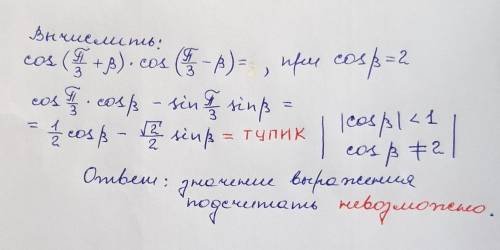 Вычислить:
cos(π/3 + β) · cos(π/3 − β) = , при cosβ = 2
cos π/3 · cosβ − sin π/3 sinβ =
= 1/2 cosβ − √2/2 sinβ = тупик | |cosβ| < 1
cosβ ≠ 2 |
Ответ: значение выражения
подсчитать невозможно.